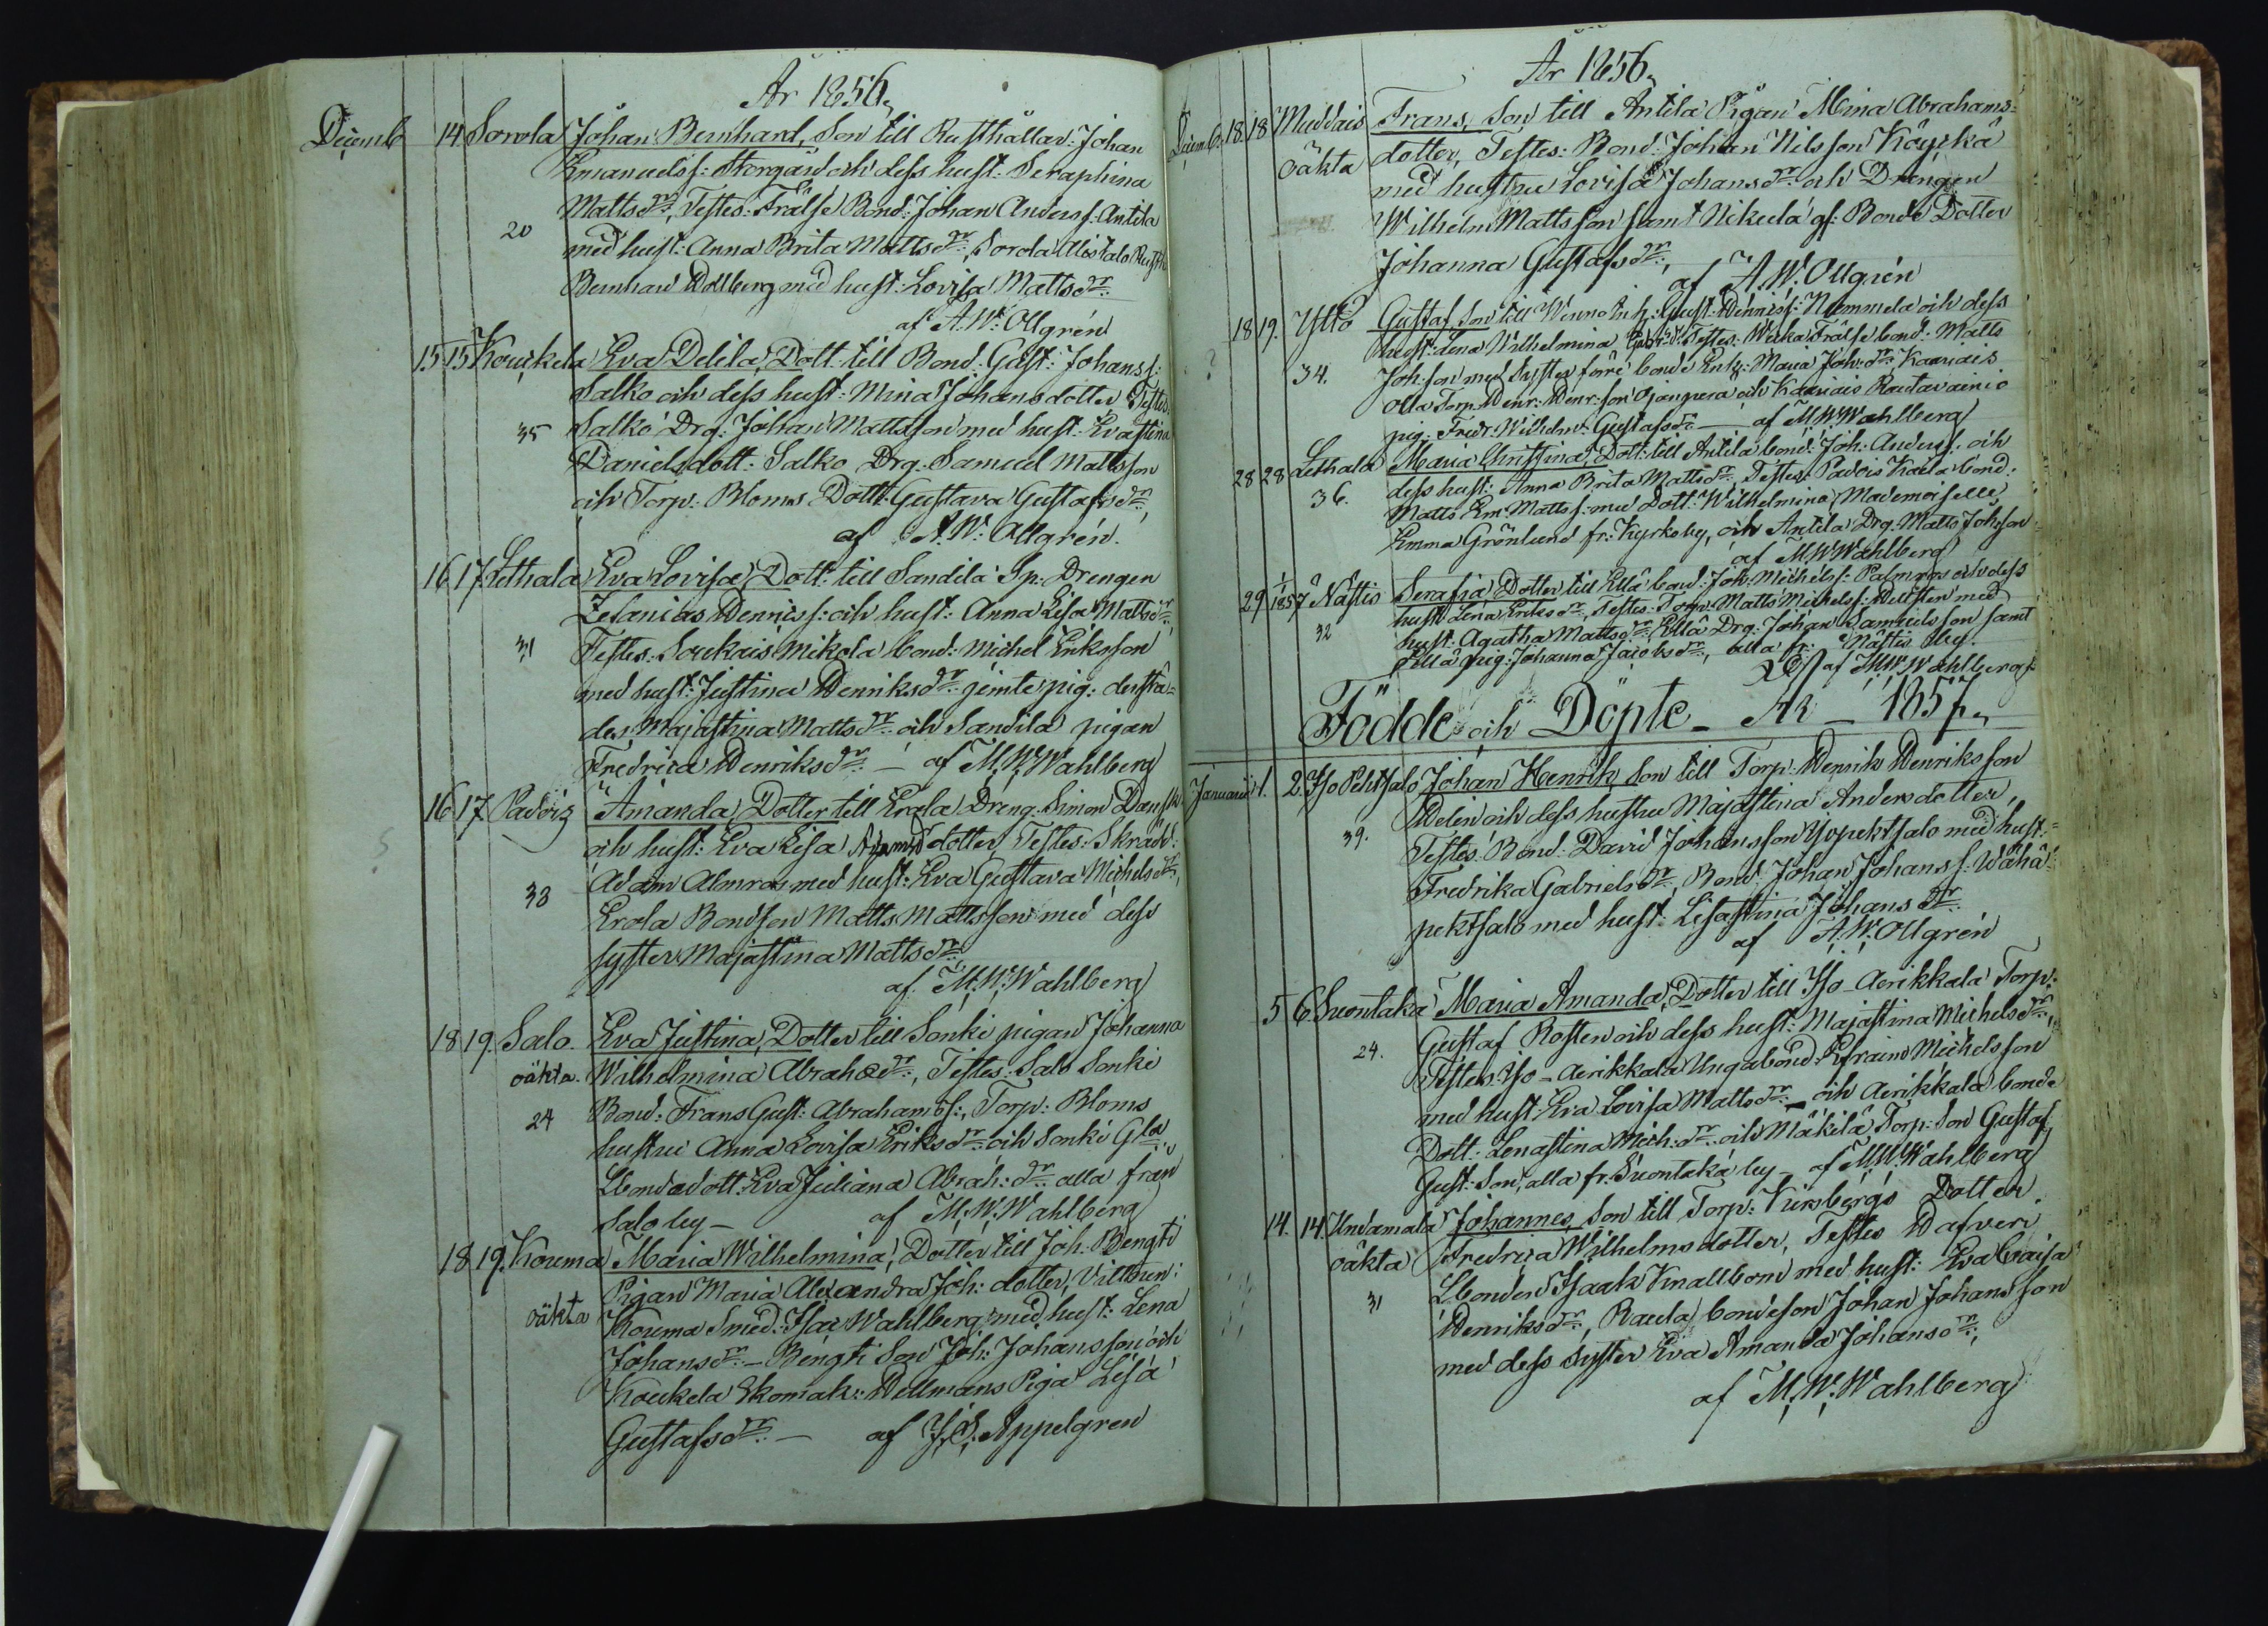 År 1856,
Decemb 14 Sorola Johan Bernhard, Son till Rusthållar: Johan
Emanuelsf: Storgård och dess hust: Seraphina
Mattsdr:, Testes: Frälse Bond: Johan Andersf: Antila
20
med hust: Anna Brita Mattsdr:, Sorola Alistalo Rusth
Bernhard Hollberg med hust: Lovisa Mattsdr:
af A. W. Ollgrén
15 15 Kouckela Eva Delila, Dott: till Bond: Gust: Johansf:
Salko och dess hust: Mina Johansdotter Testes:
35 Salko Drg: Johan Mattsson med hust: Evastina
Danielsdott: Salko Drg. Samuel Mattsson
och Torp: Bloms Dott: Gustava Gustafsdr:,
af A. W. Ollgrén.
16 17 Lethala Eva Lovisa, Dott: till Sandila Sp: Drengen
Zefanias Henricsf: och hust: Anna Lisa Mattsdr:
31 Testes: Soukais Mikola bond: Michel Eriksson
med hust: Justina Henriksdr: jemte pig: derstä=
des Majastina Mattsdr: och Sandila pigan
Fredrica Henriksdr: – af M. W. Wahlberg
16 17 Padois Amanda, Dotter till Erola Dreng. Simon
och hust: Eva Lisa Adamsdotter, Testes: Skrädd:
33 Adam Almros med hust: Eva Gustava Michelsdr:,
Erola Bondson Matts Mattsson med dess
syster Majastina Mattsdr:,
af M. W. Wahlberg
18 19. Salo. Eva Justina, Dotter till Sonki pigan Johanna
oäkta. Wilhelmina Abrahdr:, Testes: Salo Sonki
24 Bond: Frans Gust: Abrahamsf:, Torp: Bloms
hustru Anna Lovisa Eriksdr: och Sonki Gla
Lbondadott: Eva Juliana Abrah: dr: alla från
Salo by – af M. W. Wahlberg
18 19. Kouma Maria Wilhelmina, Dotter till Joh: Bengti
Pigan Maria Alexandra Joh: dotter, Vittnen:
oäkta Kouma Smed: Isac Wahlberg med hust: Lena
Johansdr: – Bengti Son Joh: Johansson och
Kouckela Skomak: Hellmans Piga Lisa
Gustafsdr: – af J. S. Appelgren
År 1856,
Decemb: 18 18 Muddais Frans, Son till Antila Pigan Mina Abrahams=
oäkta dotter, Testes: Bond: Johan Nilsson Köyckä
med hustru Lovisa Johansdr: och Drengen
Wilhelm Mattsson samt Nikula gf: Bonde Dotter
Johanna Gustafsdr:,
af A. W. Ollgrén
18 19. Yltö Gustaf, Son till Gust: Henricsf: Nummela och dess
hust: Lena Wilhelmina Testes: Wecka Frälse bond: Matts
34. Joh: son med Syster före bonde Enk: Maria Joh: dr: Kaarais
Olla Torp. Henr: Henr: son Ojanpera och Kaarais Rautavainio
pig: Fredr: Wilhelm: Gustafsdr – af M. W. Wahlberg
28 28 Lethala Maria Christina, Dott: till Antila bond: Joh: Andersf: och
36. dess hust: Anna Brita Mattsdr:, Testes: Padois Kaila bond:
Matts Em: Mattsf: med Dott: Wilhelmina, Mademoiselle
Emma Grönlund fr: Kyrkoby, och Antila Drg: Matts Johsson
af M. W. Wahlberg
29 1/1 1857 Nästis Serafia, Dotter till Ellä bond: Joh: Michelsf: Palmros och dess
32 hust Lena Eriksdr:, Testes: Torp: Matts Michelsf: Hellsten med
hust: Agatha Mattsdr: Ellä Drg: Johan Samuelsson samt
Ellä pig: Johanna Jacobsdr:, alla fr: Nästis by.
af M. W. Wahlberg
Födde och Döpte – År – 1857,
Januarii 1. 2. Iso Pehtsalo Johan Henrik, Son till Torp: Henrik Henriksson
39. Helin och dess hustru Majastina Andersdotter,
Testes: Bond: David Johansson Ysopehtsalo med hust:=
Fredrika Gabrielsdr:, Bond: Johan Johansf: Wähä=
pehtsalo med hust: Lisastina Johansdr:
af A. W. Ollgrén
5 6 Suontaka Maria Amanda, Dotter till Iso–Aerikkala Torp:
24. Gustaf Rosten och dess hust: Majastina Michelsdr:,
Testes: Iso–Aerikkala Ungabond: Efraim Michelsson
med hust: Eva Lovisa Mattsdr: – och Aerikkala bonde
Dott: Lenastina Mich: dr: och Mäkilä Torp: Son Gustaf
Gust: Son, alla fr. Suontaka by – af M. W. Wahlberg
14. 14 Undamala Johannes, Son till Torp: Dotter
oäkta Fredrica Wilhelmsdotter, Testes Hafveri
Lbonden Isaak Knallbom med hust: Eva Caisa
31 Henriksdr:, Raula bondeson Johan Johansson
med dess Syster Eva Amanda Johansdr:,
af M. W. Wahlberg